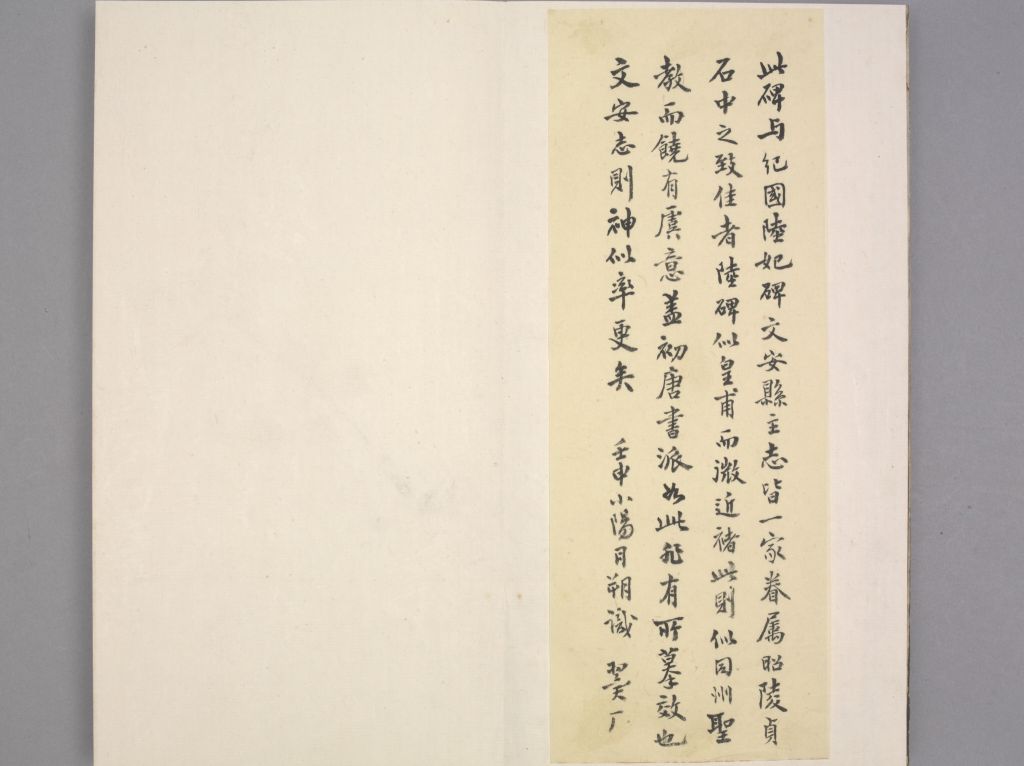 此碑与紀國陸妃碑文安縣主志皆一家眷属昭陵貞
石中之致佳者陸碑似皇甫而微近褚此則似同州聖
教而饒有虞意盖初唐書派如此非有所摹效也
文安志則神似率更矣 壬申小陽月朔識 翼厂